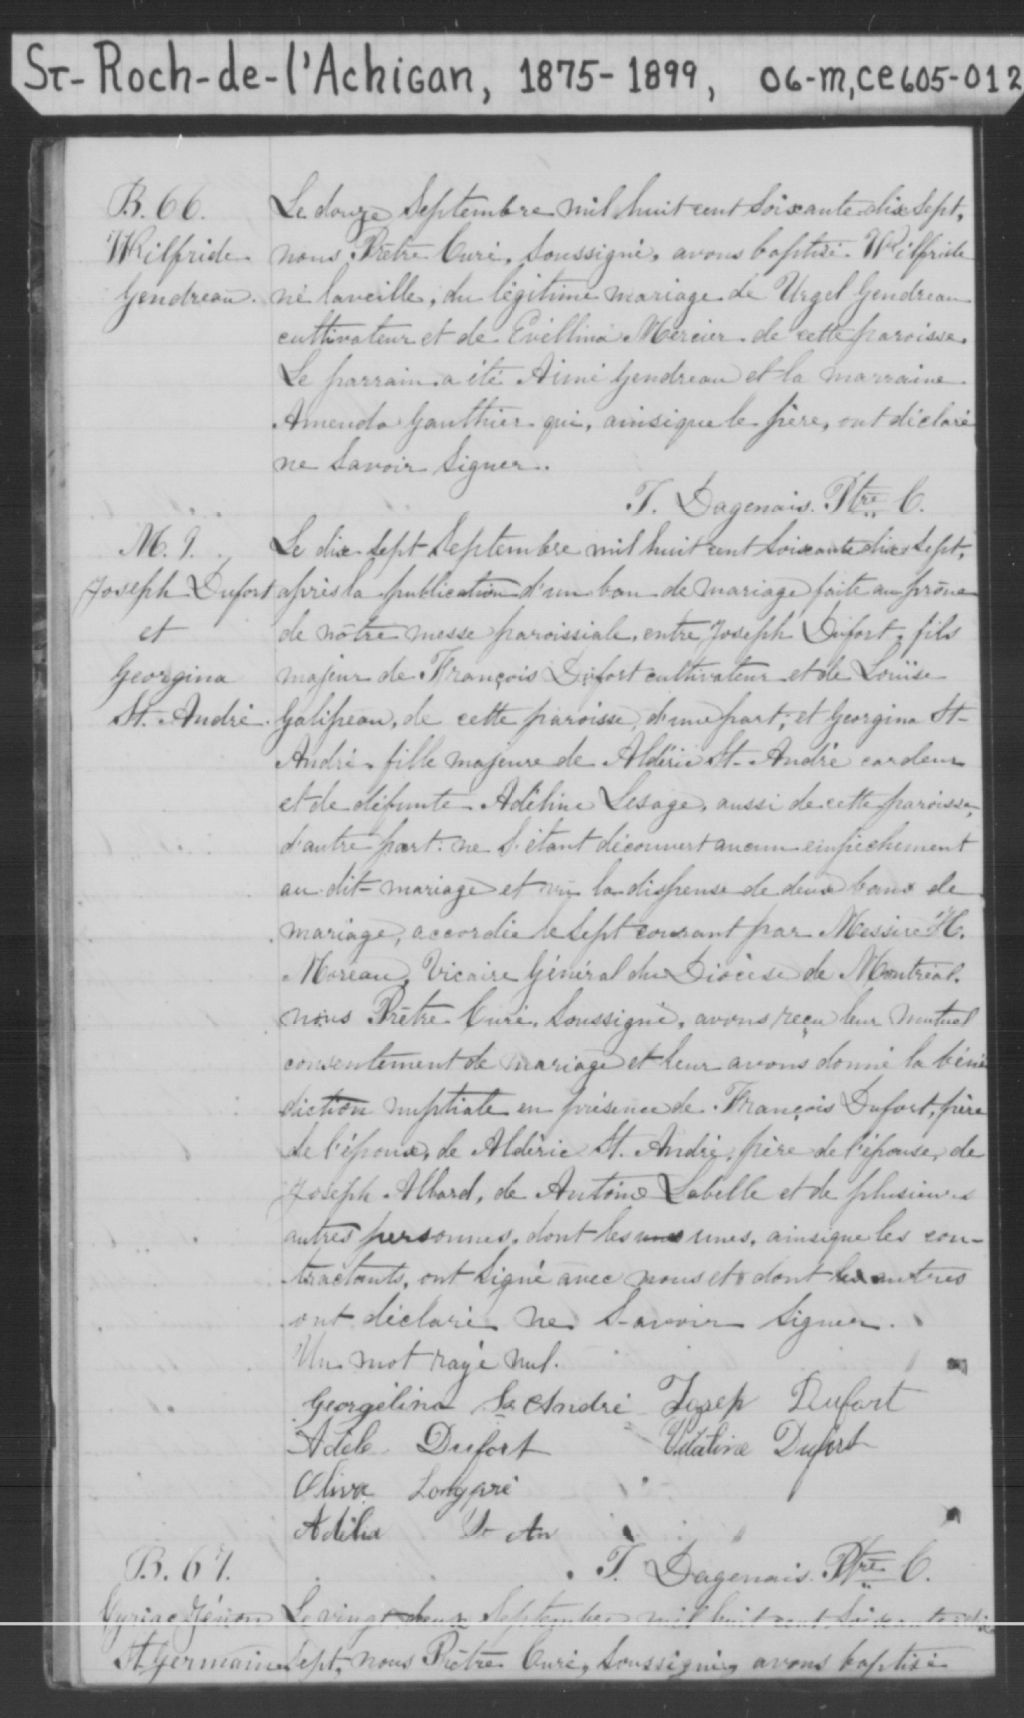 St-Roch-de-l'Achigan, 1875-1899, 06-M,CE605-012
B. 66.
Wilfride
Gendreau.
Le douze Septembre mil huit cent soixante dix sept,
nous Prêtre Curé, soussigné, avons baptisé Wilfride
né la veille, du légitime mariage de Urgel Gendreau
cultivateur et de Evéllina Mercier de cette paroisse.
Le parrain a été Aimé Gendreau et la marraine
Amenda Gauthier qui, ainsi que le père, ont déclaré
ne savoir signer.
T. Dagenais. Ptre C.
M. 9.
Joseph Dufort
et
Georgina
St. André.
Le dix sept Septembre mil huit cent soixante dix sept,
après la publication d'un ban de mariage faite au prône
de nôtre messe paroissiale, entre Joseph Dufort, fils
majeur de François Dufort cultivateur et de Louise
Galipeau, de cette paroisse, d'une part; et Georgina St-
André, fille majeure de Aldéric St-André cardeur
et de défunte Adéline Lesage, aussi de cette paroisse,
d'autre part. ne s'étant découvert aucun empêchement
au dit mariage et vu la dispense de deux bans de
mariage, accordée le sept courant par Messire H.
Moreau, Vicaire Général du Diocèse de Montréal.
nous Prêtre Curé, soussigné, avons reçu leur mutuel
consentement de mariage et leur avons donné la béné
diction nuptiale en présence de François Dufort, père
de l'époux, de Aldéric St. André, père de l'épouse, de
Joseph Allard, de Antoine Labelle et de plusieurs
autres personnes, dont les uns unes, ainsi que les con-
tractants, ont signé avec nous et dont les autres
ont déclaré ne savoir signer.
Un mot rayé nul.
Georgélina St André Josep Dufort
Adèle Dufort Vitaline Dufort
Oliva Longpré
Adélia St An
T. Dagenais. Ptre C.
B. 67.
Cyriac Zénon
St. Germain
Le vingt deux Septembre mil huit cent soixante dix
sept, nous Prêtre Curé, soussigné, avons baptisé